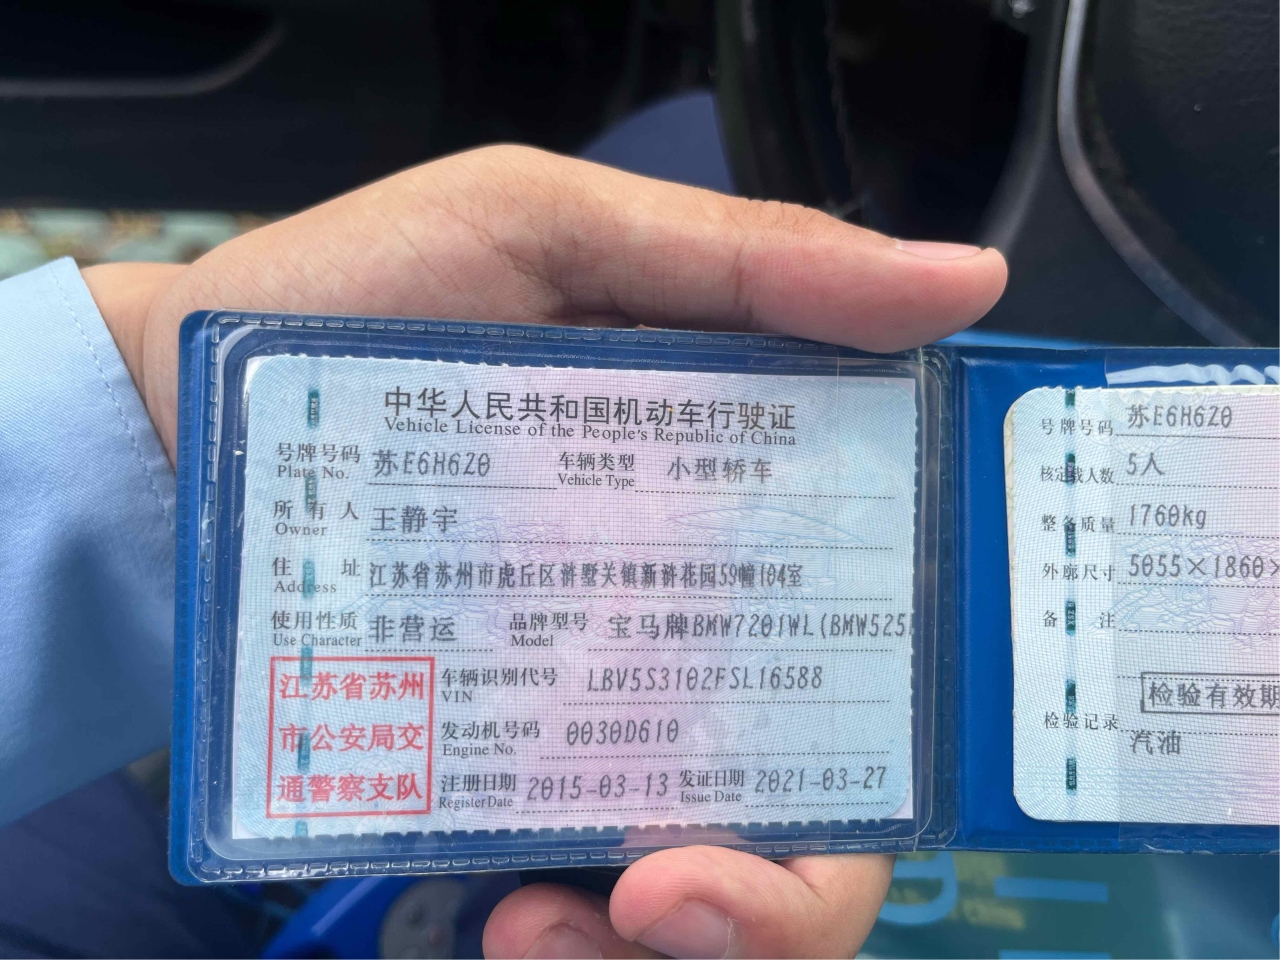 中华人民共和国机动车行驶证
Vehicle License of the People's Republic of China
号牌号码 苏E6H6Z0 车辆类型 小型轿车
Plate No. Vehicle Type
所有人 王静宇
Owner
住址 江苏省苏州市虎丘区浒墅关镇新浒花园59幢104室
Address
使用性质 非营运 品牌型号 宝马牌BMW7201WL(BMW525
Use Character Model
江苏省苏州
市公安局交
通警察支队
车辆识别代号 LBV5S3102FSL16588
VIN
发动机号码 0030D610
Engine No.
注册日期 2015-03-13 发证日期 2021-03-27
Register Date Issue Date
号牌号码 苏E6H6Z0
核定载人数 5人
整备质量 1760kg
外廓尺寸 5055×1860×
备注
检验有效期
检验记录
汽油